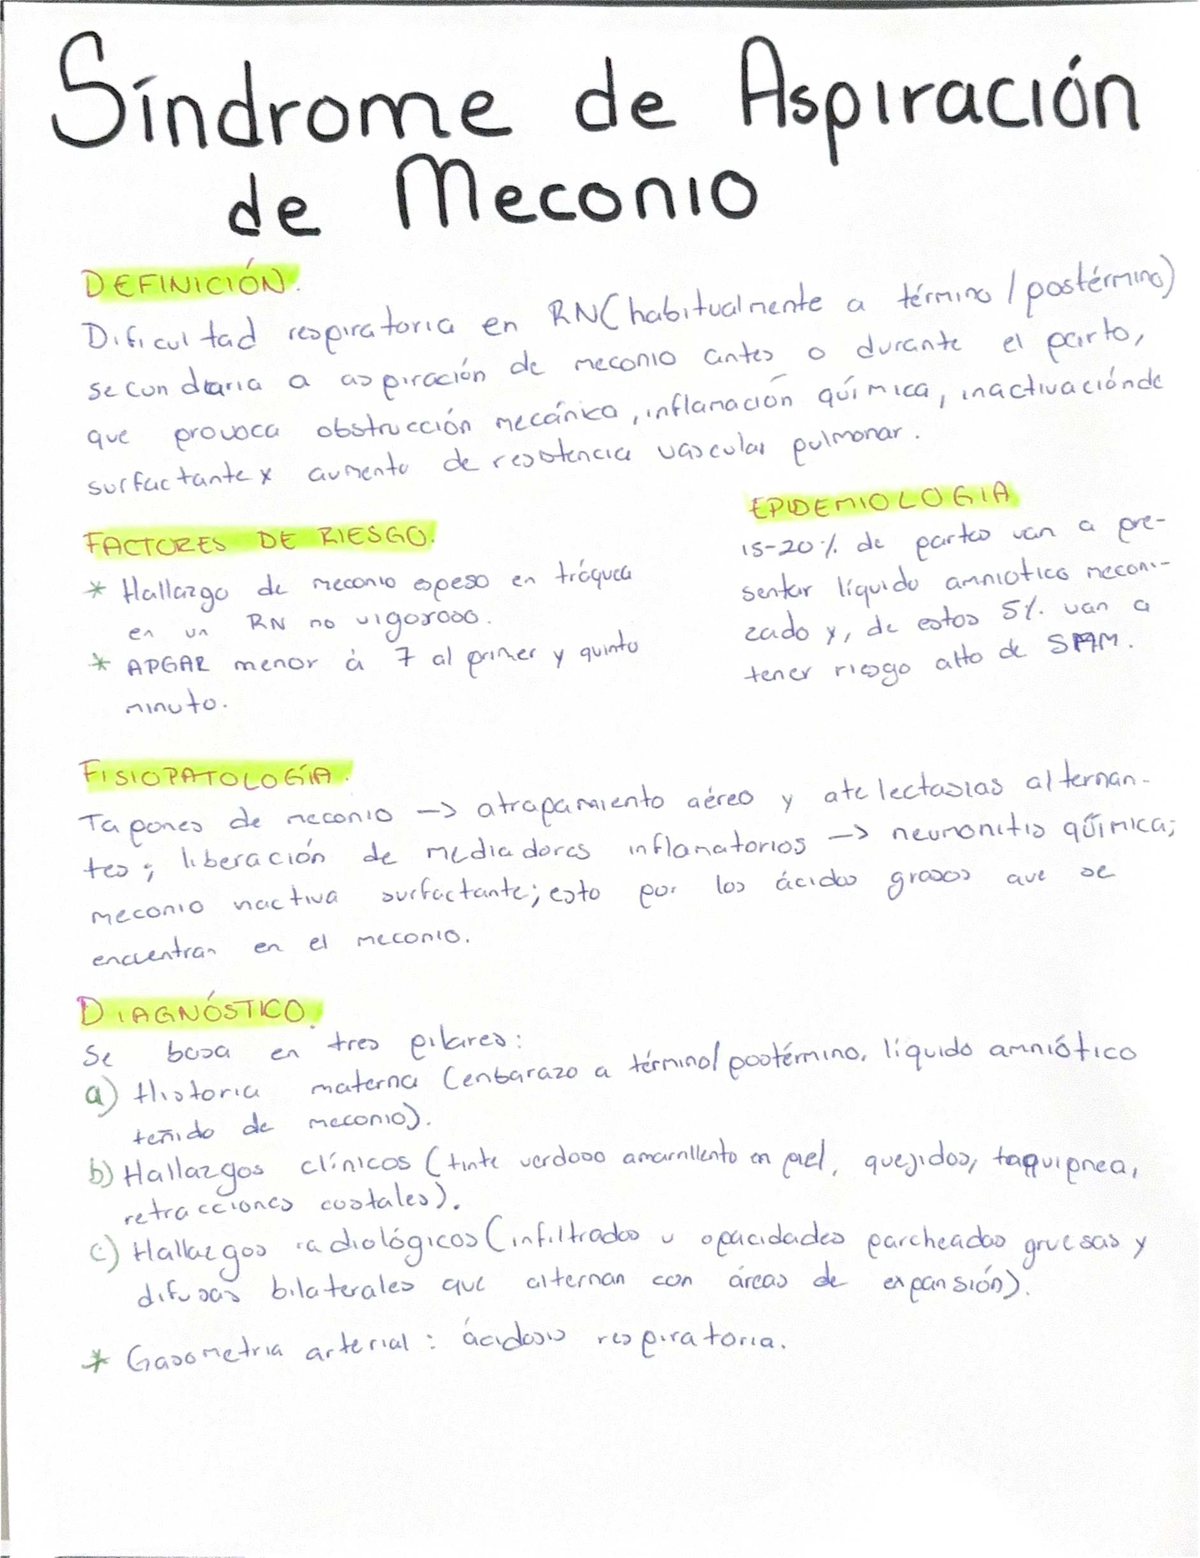 Síndrome de Aspiración
de Meconio
DEFINICIÓN.
Dificultad respiratoria en RN (habitualmente a término / postérmino)
secundaria a aspiración de meconio antes o durante el parto,
que provoca obstrucción mecánica, inflamación química, inactivación de
surfactante y aumento de resistencia vascular pulmonar.
FACTORES DE RIESGO.
* Hallazgo de meconio espeso en tráquea
en un RN no vigoroso.
* APGAR menor a 7 al primer y quinto
minuto.
EPIDEMIOLOGIA
15-20% de partos van a pre-
sentar líquido amniotico meconi-
zado y, de estos 5% van a
tener riesgo alto de SAM.
FISIOPATOLOGÍA.
Tapones de meconio -> atrapamiento aéreo y atelectasias alternan-
tes; liberación de mediadores inflamatorios -> neumonitis química;
meconio inactiva surfactante; esto por los ácidos grasos que se
encuentran en el meconio.
DIAGNÓSTICO.
Se basa en tres pilares:
a) Historia materna (enbarazo a término/postérmino, líquido amniótico
teñido de meconio).
b) Hallazgos clínicos (tinte verdoso amarillento en piel, quejidos, taquipnea,
retracciones costales).
c) Hallazgos radiológicos (infiltrados u opacidades parcheadas gruesas y
difusas bilaterales que alternan con áreas de expansión).
* Gasometria arterial: ácidosis respiratoria.